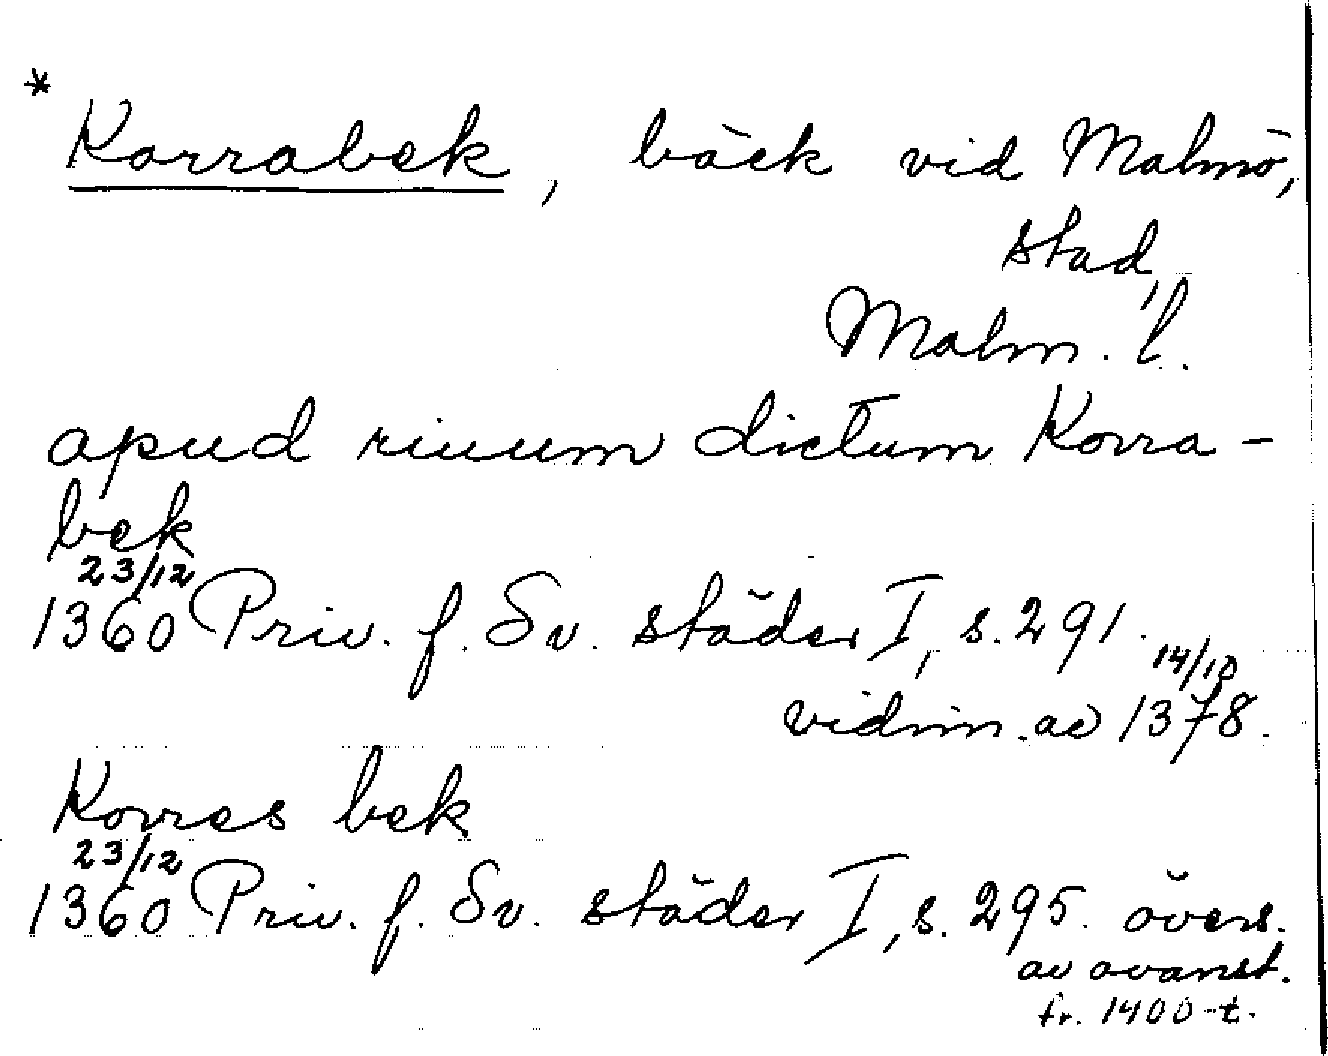 * Korrabek, bäck vid Malmö,
stad,
Malm. l.
apud riuum dictum Korra-
bek
23/12
1360 Priv. f. Sv. städer I, s. 291.
14/10
vidim. av 1378.
Korres bek
23/12
1360 Priv. f. Sv. städer I, s. 295. övers.
av ovanst.
fr. 1400-t.